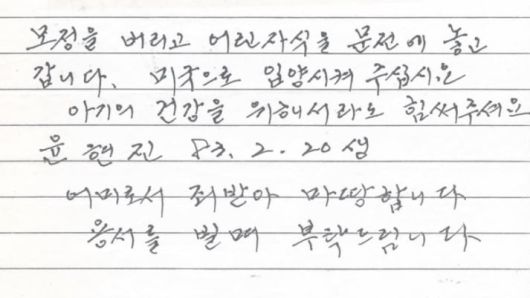 모정을 버리고 어린자식을 문전에 놓고
갑니다. 미국으로 입양시켜 주십시오
아기의 건강을 위해서라도 힘써주셔요
윤현진 83. 2. 20 생
어미로서 죄받아 마땅합니다
용서를 빌며 부탁드립니다